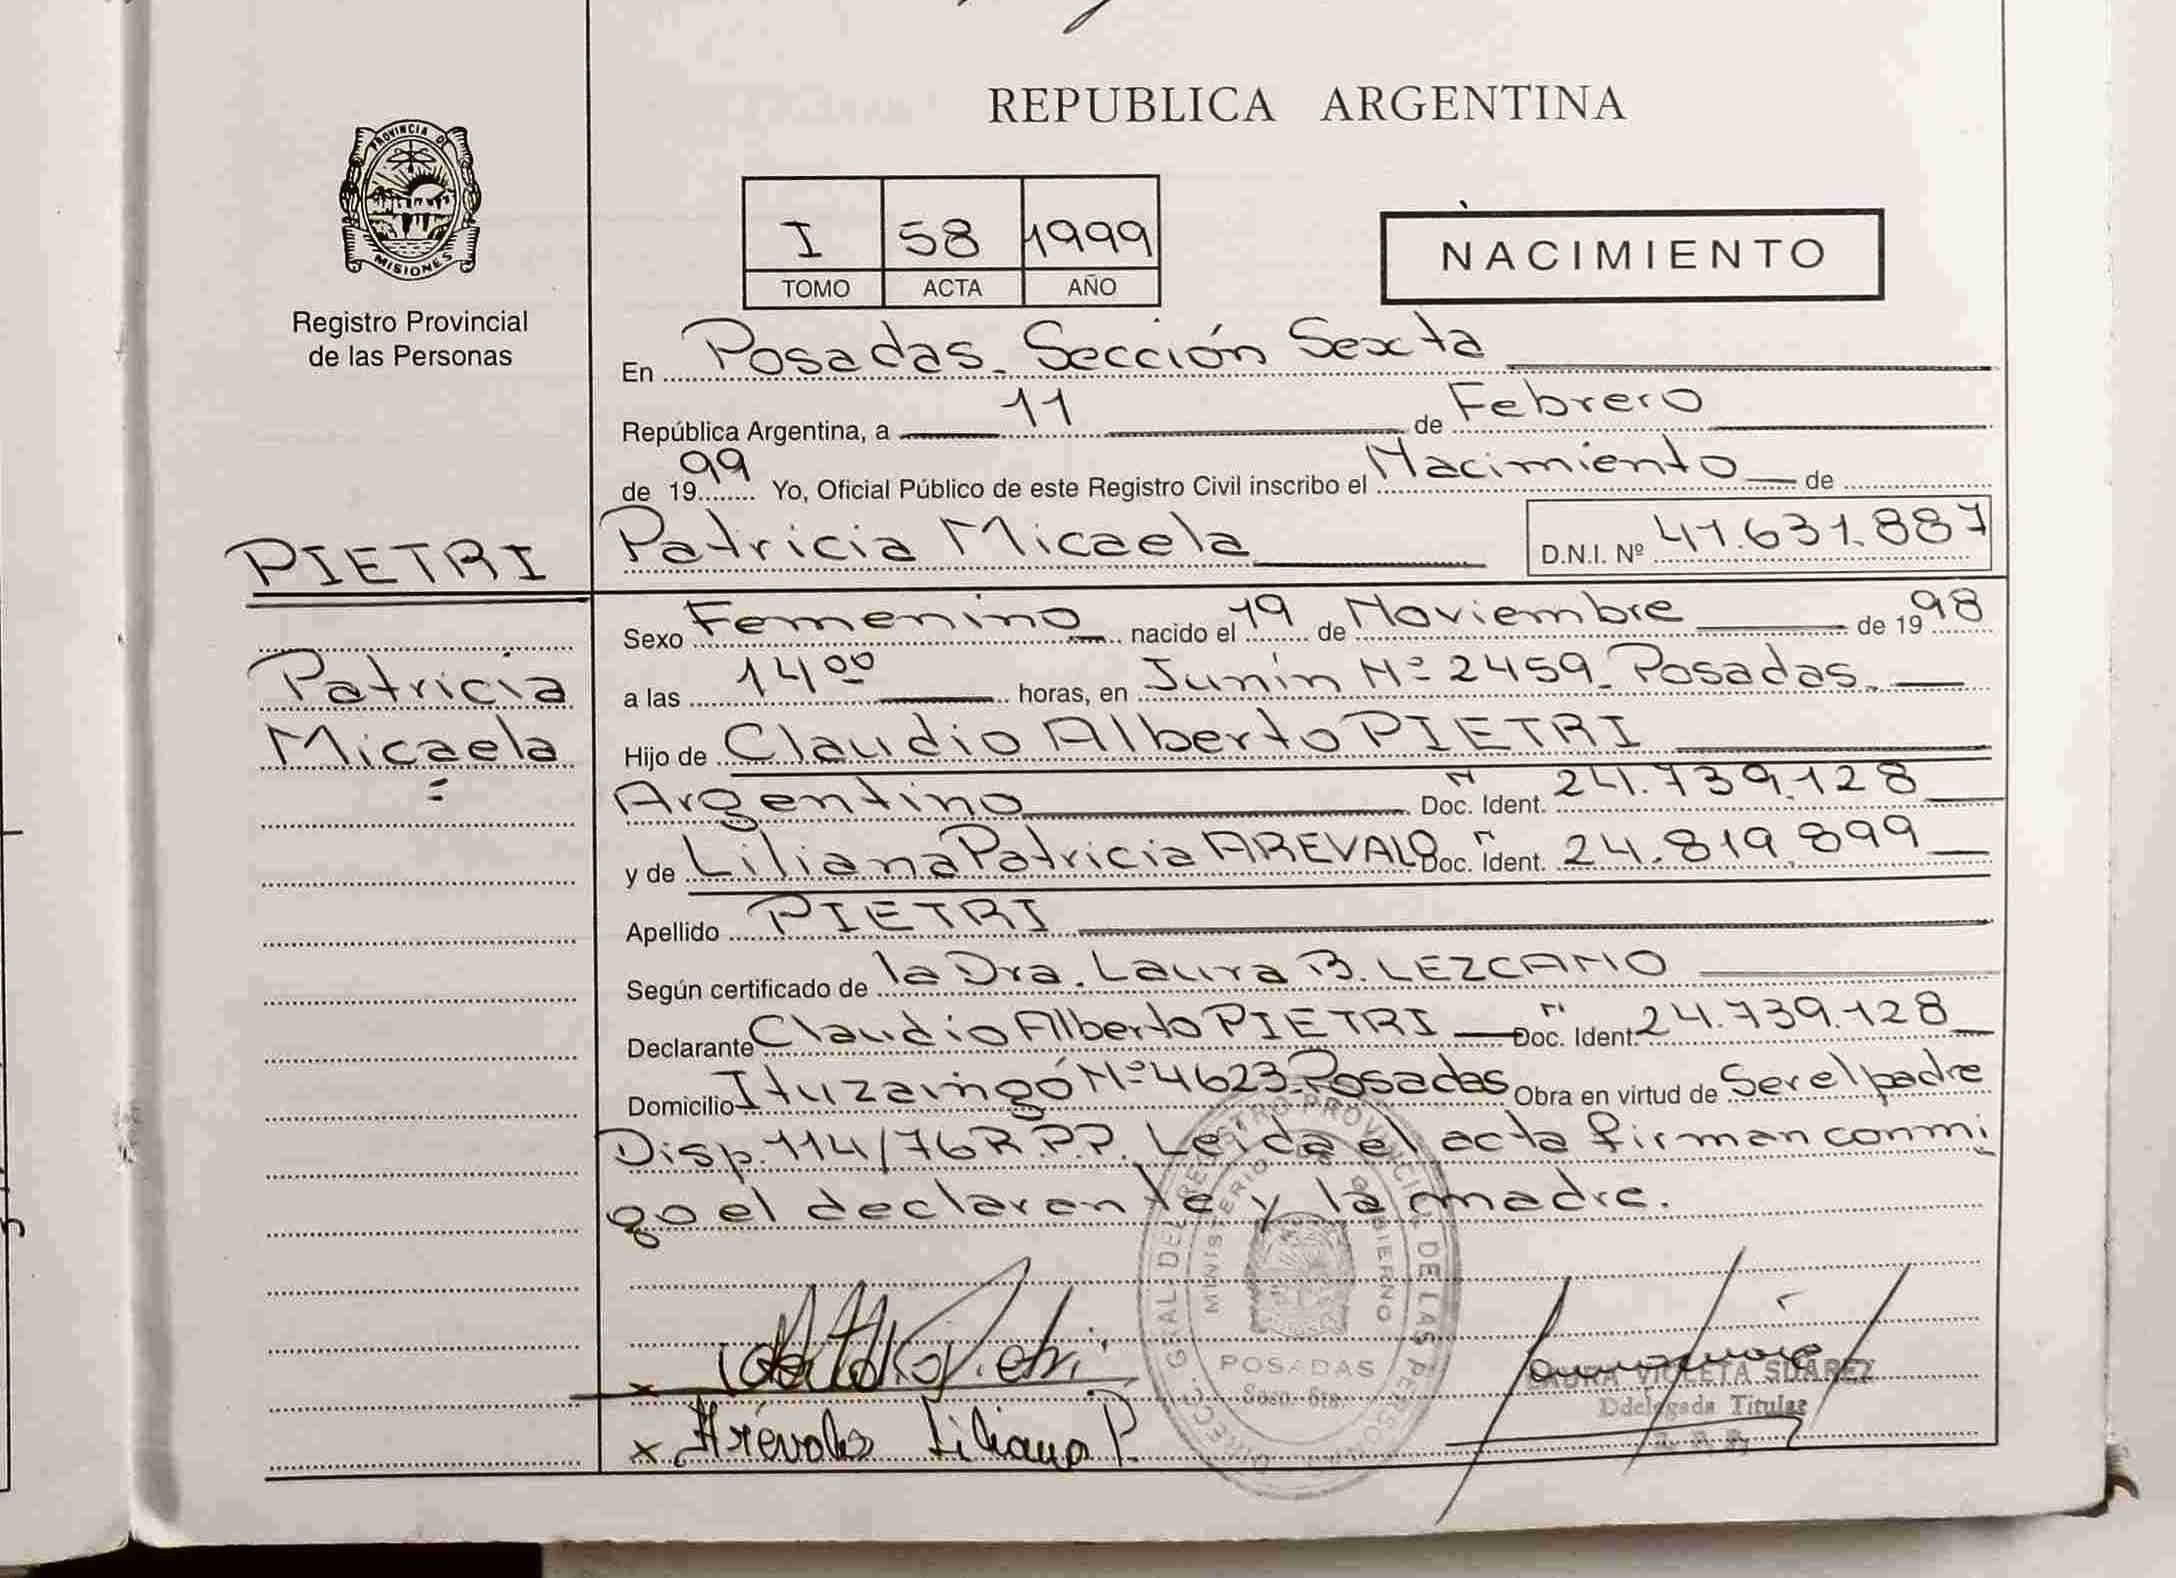 REPUBLICA ARGENTINA
PROVINCIA DE
MISIONES
Registro Provincial
de las Personas
I 58 1999
TOMO ACTA AÑO
NACIMIENTO
En Posadas. Sección Sexta
República Argentina, a 11 de Febrero
de 1999 Yo, Oficial Público de este Registro Civil inscribo el Nacimiento de
PIETRI
Patricia Micaela D.N.I. Nº 41.631.887
Patricia
Micaela
Sexo Femenino nacido el 19 de Noviembre de 1998
a las 14⁰⁰ horas, en Junín Nº 2459. Posadas.
Hijo de Claudio Alberto PIETRI
Argentino Doc. Ident. 24.739.128
y de Liliana Patricia AREVALO Doc. Ident. 24.819.899
Apellido PIETRI
Según certificado de la Dra. Laura B. LEZCANO
Declarante Claudio Alberto PIETRI Doc. Ident. 24.739.128
Domicilio Ituzaingó Nº 4623. Posadas Obra en virtud de Ser el padre
Disp. 114/76 R.P.P. Leída el acta firman conmi
go el declarante y la madre.
DIREC. GRAL DEL REGISTRO PROVINCIAL DE LAS PERSONAS
MINISTERIO DE GOBIERNO
POSADAS
Secc. 6ta.
x
x Arévalo Liliana P.
LAURA VIOLETA SUAREZ
Ddelegada Titular
R. P. P.